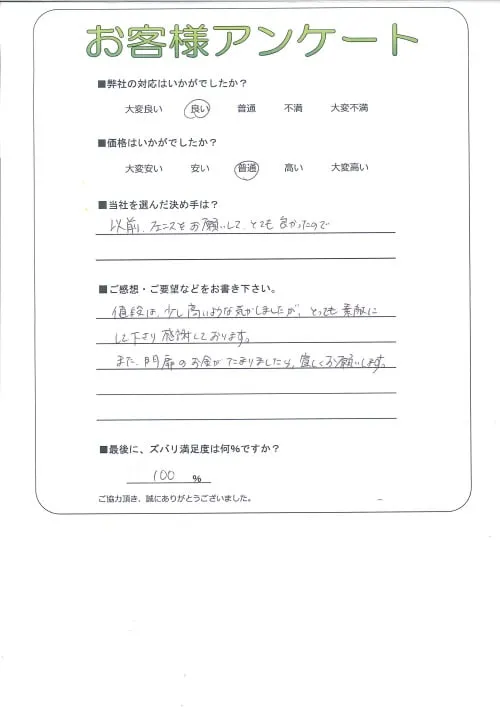 お客様アンケート
■弊社の対応はいかがでしたか？
大変良い 良い 普通 不満 大変不満
■価格はいかがでしたか？
大変安い 安い 普通 高い 大変高い
■当社を選んだ決め手は？
以前、フェンスをお願いして、とても良かったので
■ご感想・ご要望などをお書き下さい。
値段は、少し高いような気がしましたが、とっても素敵に
して下さり感謝しております。
また、門扉のお金がたまりましたら、宜しくお願いします。
■最後に、ズバリ満足度は何%ですか？
100 %
ご協力頂き、誠にありがとうございました。